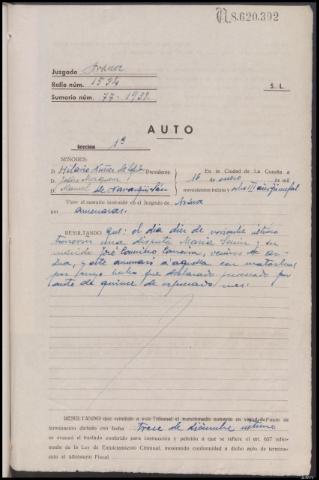 N8.620.392
Juzgado Arzua
Rollo núm. 1594
Sumario núm. 77-1938
S. L.
AUTO
Sección 1ª
SEÑORES:
D. Hilario Núñez de Presidente
D.
D. Manuel de
En la Ciudad de La Coruña a
16 enero de mil
novecientos treinta y III año triunfal
Visto el sumario instruido en el Juzgado de Arzua
por amenazas.
RESULTANDO Que: el día diez de noviembre último
tuvieron una disputa María y su
marido José vecinos de
y este amenazó a aquella con matarla;
por cuyo hecho fue declarado procesado por
auto de quince de expresado mes.
RESULTANDO que remitido a este Tribunal el mencionado sumario en virtud de auto de
terminación dictado con fecha trece de diciembre último
se evacuó el traslado conferido para instrucción y petición a que se refiere el art. 627 refor-
mado de la Ley de Enjuiciamiento Criminal, mostrando conformidad a dicho auto de termina-
ción el Ministerio Fiscal.